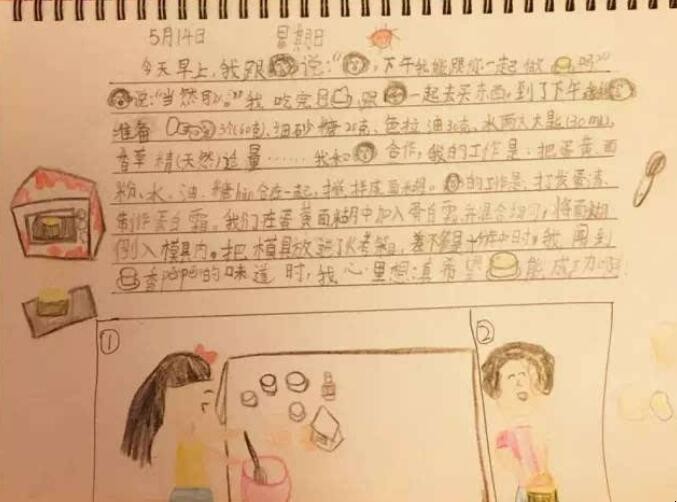 5月14日 星期日
今天早上,我跟说:“,下午我能跟你一起做吗?”
说:“当然可以。”我吃完,跟一起去买东西。到了下午
准备3个(60克)、细砂糖20克、色拉油30克、水两大匙(30mL)、
香草精(天然)适量……我和合作,我的工作是:把蛋黄、面
粉、水、油、糖hùn合在一起,搅拌成面糊。的工作是:打发蛋清、
制作蛋白霜。我们在蛋黄面糊中加入蛋白霜并混合均匀,将面糊
倒入模具内。把模具放进了烤箱,差不多。我闻到
香pēnpēn的味道时,我心里想:真希望能成功啊!
①
②